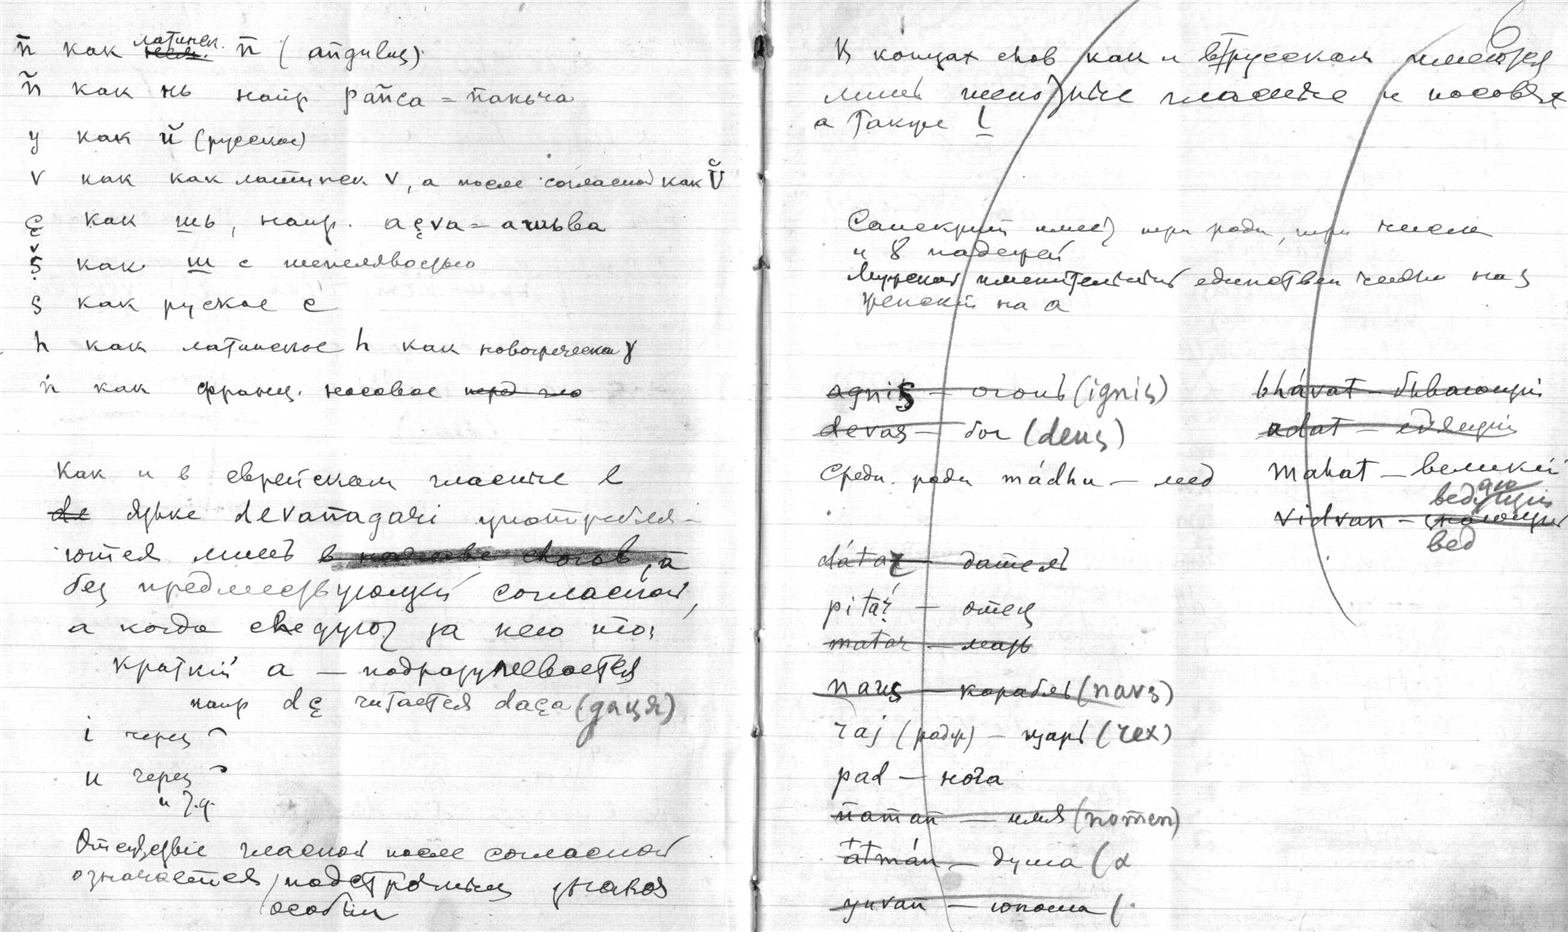 n̄ как латинск. n̄ (
ñ как нь напр panca = паньча
y как й (русское)
v как как латинск v, а после согласной как ŭ
ç как шь, напр. açva = ашьва
ṣ̌ как ш с шепелявостью
s как руское с
h как латинское h как новогреческое γ
ṅ как франц. носовое перед
Как и в еврейском гласные в
языке devanagari употребля-
ются лишь в начале слогов, а
без предшествующей согласной,
а когда следуют за нею то:
краткий а — подразумевается
напр dç читается daça (даця)
i через
u через
и т.д.
Отсутствие гласной после согласной
означается подстрочным знаком
особым
6
В концах слов как и в русском имеются
лишь гласные и носовые
а также l
Санскрит имеет три рода, три числа
и 8 падежей
Мужской именительный единствен числа на s
женский на а
agnis — огонь (ignis)
devas — бог (deus)
Средн. рода mádhu — мед
dátar — датель
pitár — отец
matar — мать
naus — корабль (navs)
raj (радж) — царь (rex)
pad — нога
naman — имя (nomen)
átmán — душа (
yuvan — юноша (
bhávat — бывающий
adat — едящий
mahat — великий
vidvan —
вед